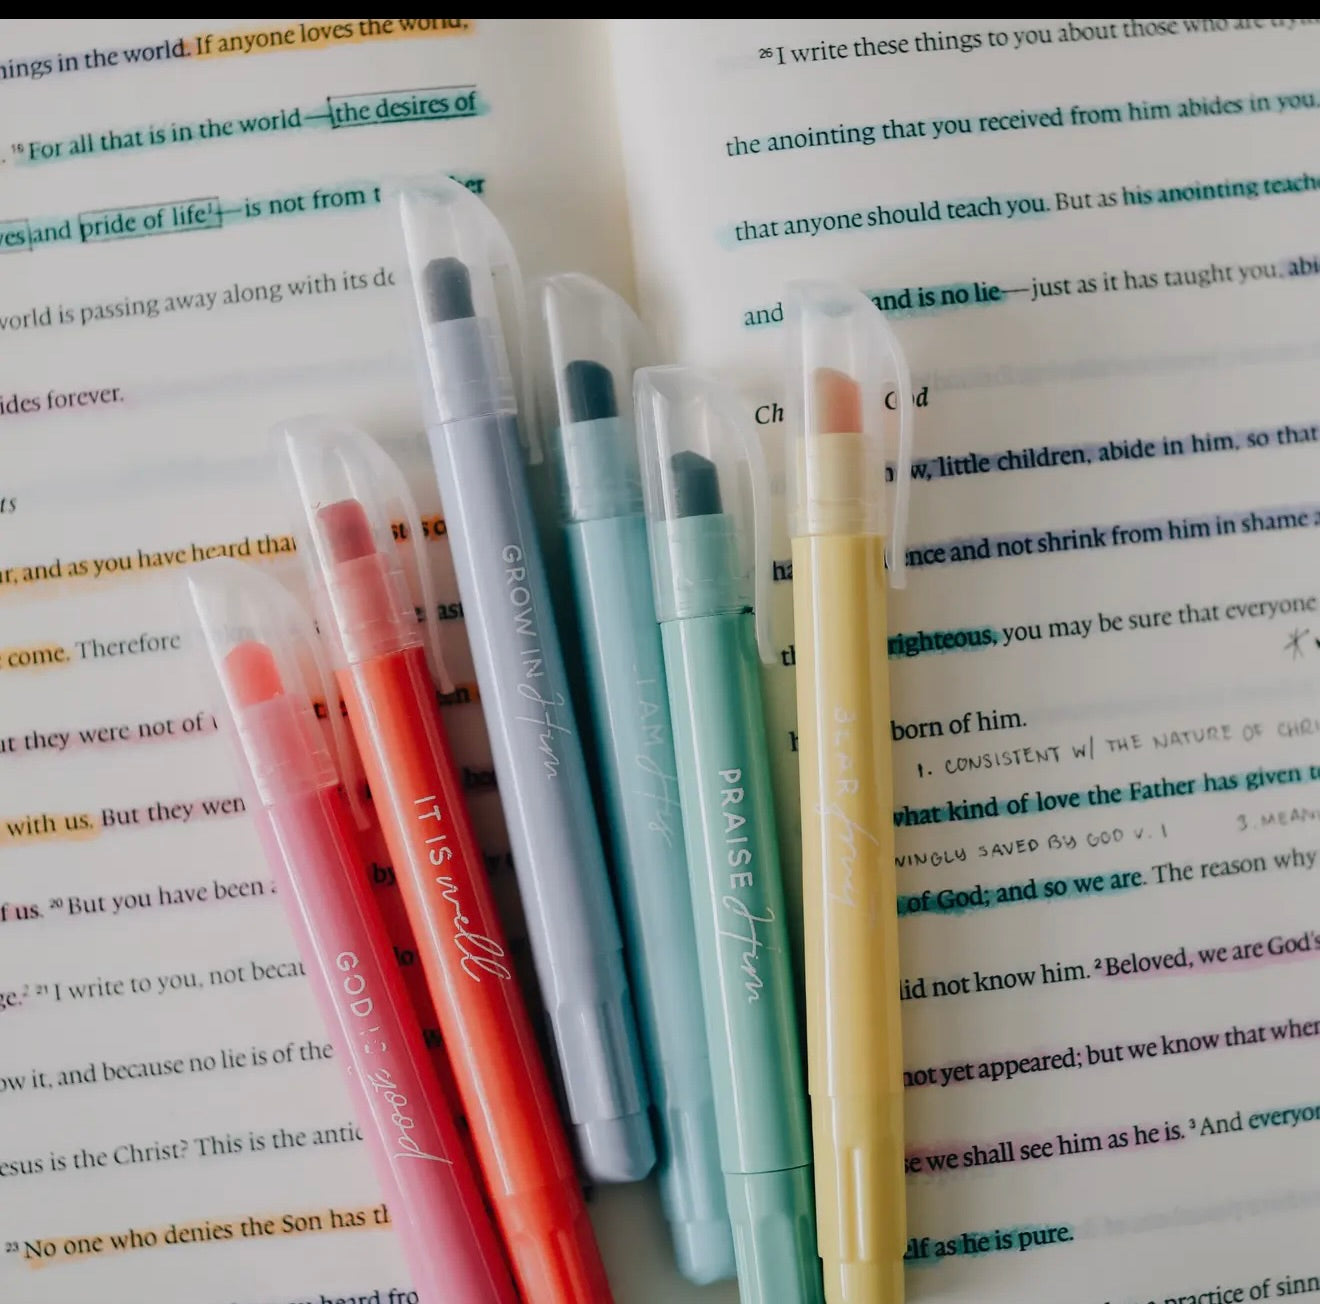 things in the world. If anyone loves the world,
. 16 For all that is in the world—the desires of
and pride of life1—is not from
world is passing away along with its
ides forever.
and as you have heard that
come. Therefore
they were not of
with us. But they
of us. 20 But you have been
2 21 I write to you, not
it, and because no lie is of the
Jesus is the Christ? This is the
23 No one who denies the Son has
heard
26 I write these things to you about those who are
the anointing that you received from him abides in you,
that anyone should teach you. But as his anointing
and and is no lie—just as it has taught you,
little children, abide in him, so that
and not shrink from him in shame
righteous, you may be sure that everyone
born of him.
1. CONSISTENT W/ THE NATURE OF
what kind of love the Father has given
SAVED BY GOD V. 1 3.
of God; and so we are. The reason why
did not know him. 2 Beloved, we are God's
not yet appeared; but we know that
we shall see him as he is. 3 And
as he is pure.
practice of
GOD IS good
IT IS well
GROW IN Him
I AM His
PRAISE Him
BEAR fruit